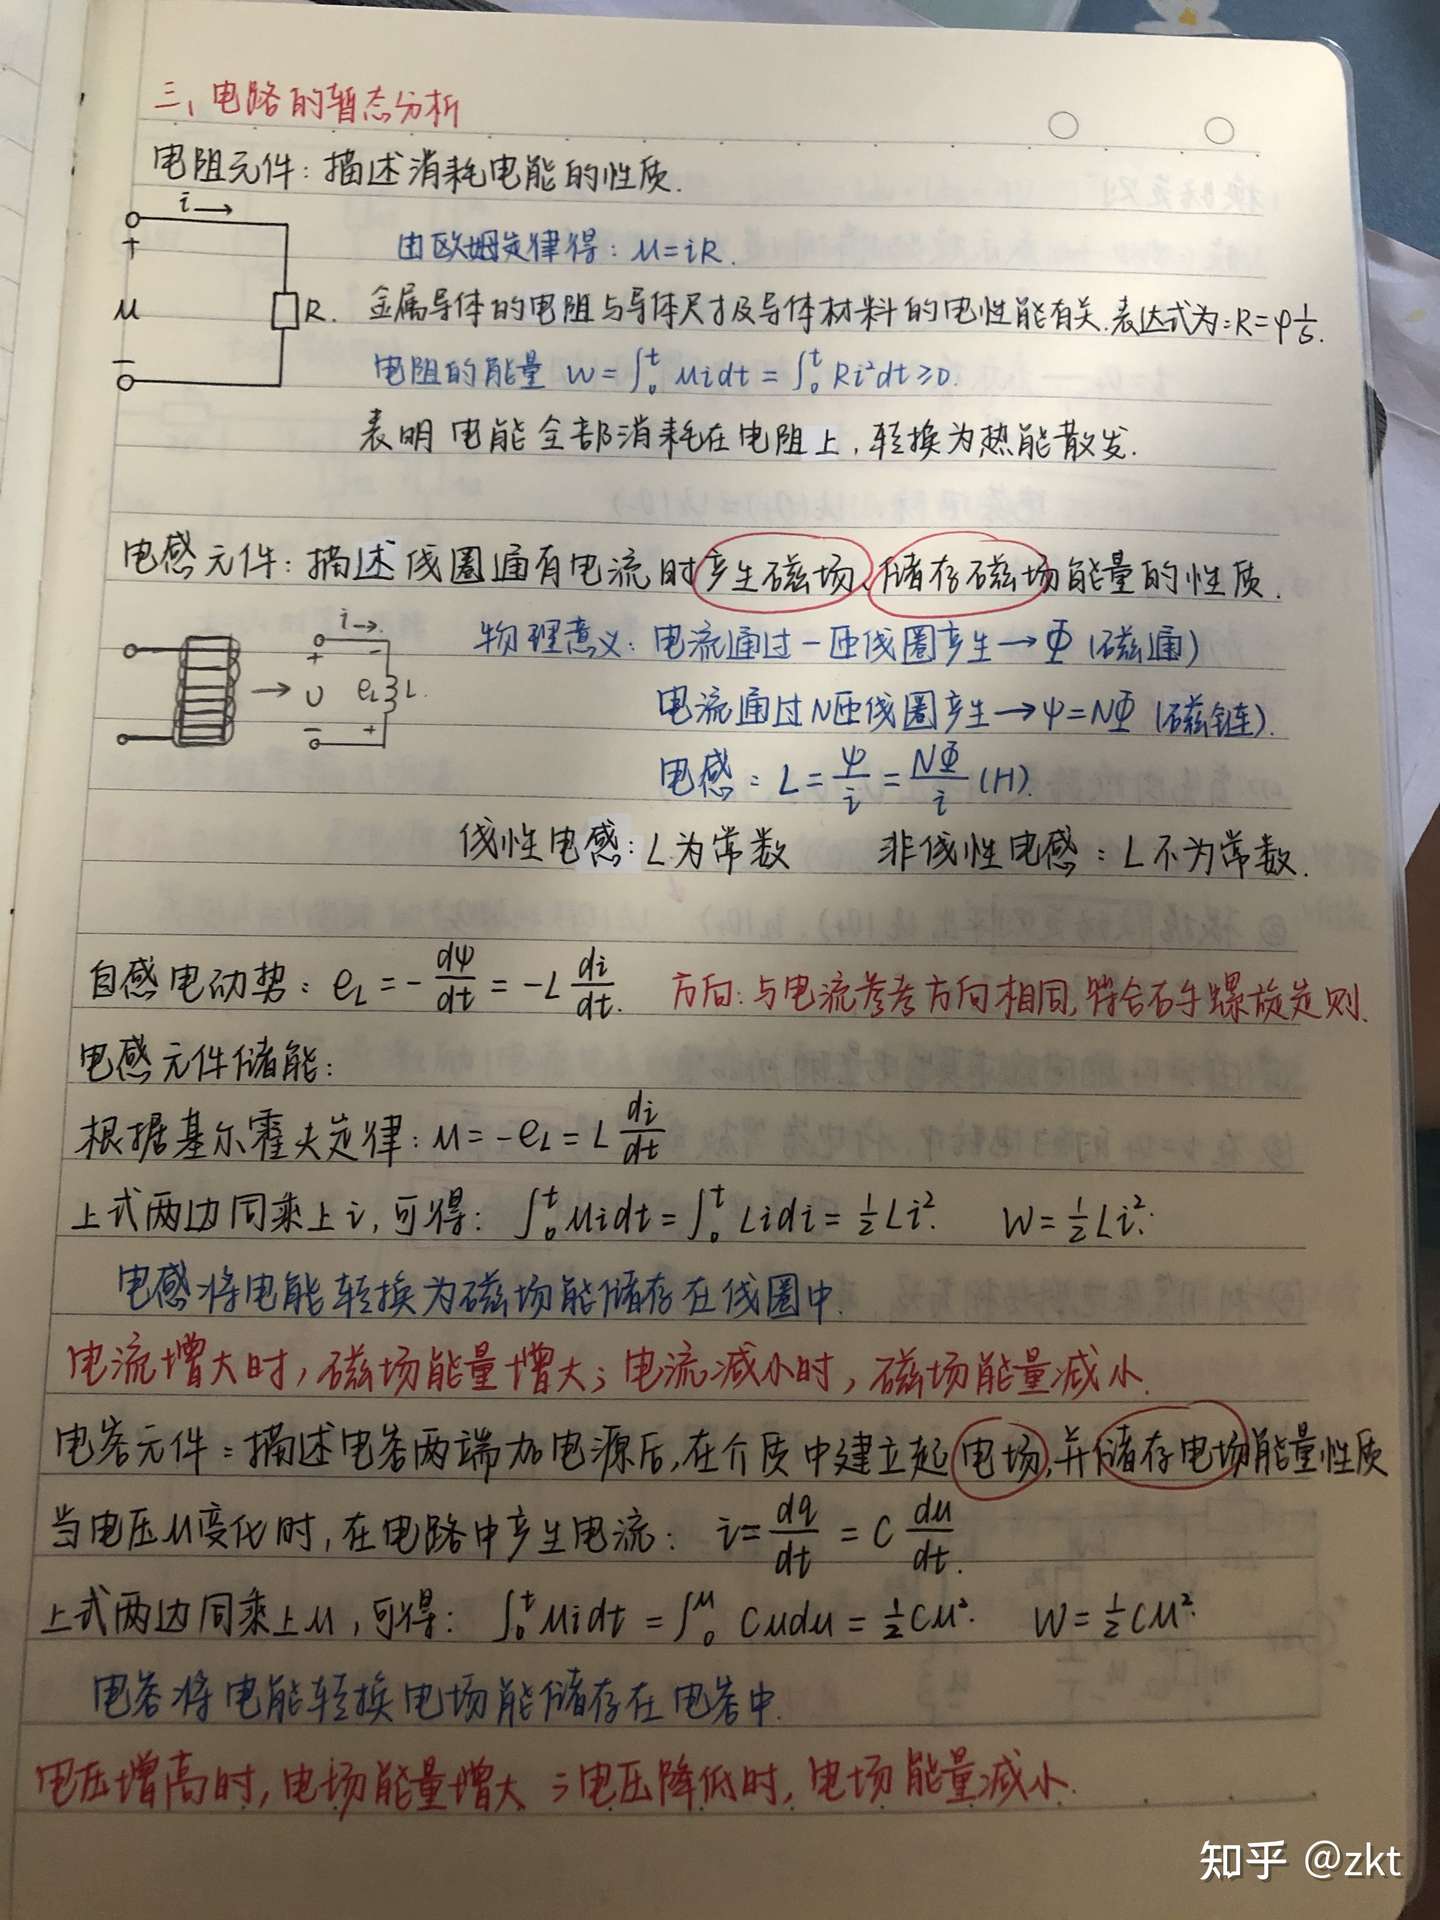 三、电路的暂态分析
电阻元件：描述消耗电能的性质.
i→
+
u
−
R.
由欧姆定律得：u=iR.
金属导体的电阻与导体尺寸及导体材料的电性能有关.表达式为：R=ρ l/s.
电阻的能量 W=∫₀ᵗ uidt=∫₀ᵗ Ri²dt≥0.
表明电能全部消耗在电阻上，转换为热能散发.
电感元件：描述线圈通有电流时产生磁场、储存磁场能量的性质.
i→
+ −
→ U eL L.
− +
物理意义：电流通过一匝线圈产生→Φ（磁通）
电流通过N匝线圈产生→ψ=NΦ（磁链）.
电感：L=ψ/i=NΦ/i (H).
线性电感：L为常数 非线性电感：L不为常数.
自感电动势：eL=-dψ/dt=-L di/dt. 方向：与电流参考方向相同，符合右手螺旋定则.
电感元件储能：
根据基尔霍夫定律：u=-eL=L di/dt
上式两边同乘上i，可得：∫₀ᵗ uidt=∫₀ᵗ Lidi=½Li². W=½Li².
电感将电能转换为磁场能储存在线圈中.
电流增大时，磁场能量增大；电流减小时，磁场能量减小.
电容元件：描述电容两端加电源后，在介质中建立起电场，并储存电场能量性质
当电压u变化时，在电路中产生电流：i=dq/dt=C du/dt.
上式两边同乘上u，可得：∫₀ᵗ uidt=∫₀ᵘ Cudu=½Cu². W=½Cu².
电容将电能转换电场能储存在电容中.
电压增高时，电场能量增大；电压降低时，电场能量减小.
知乎 @zkt